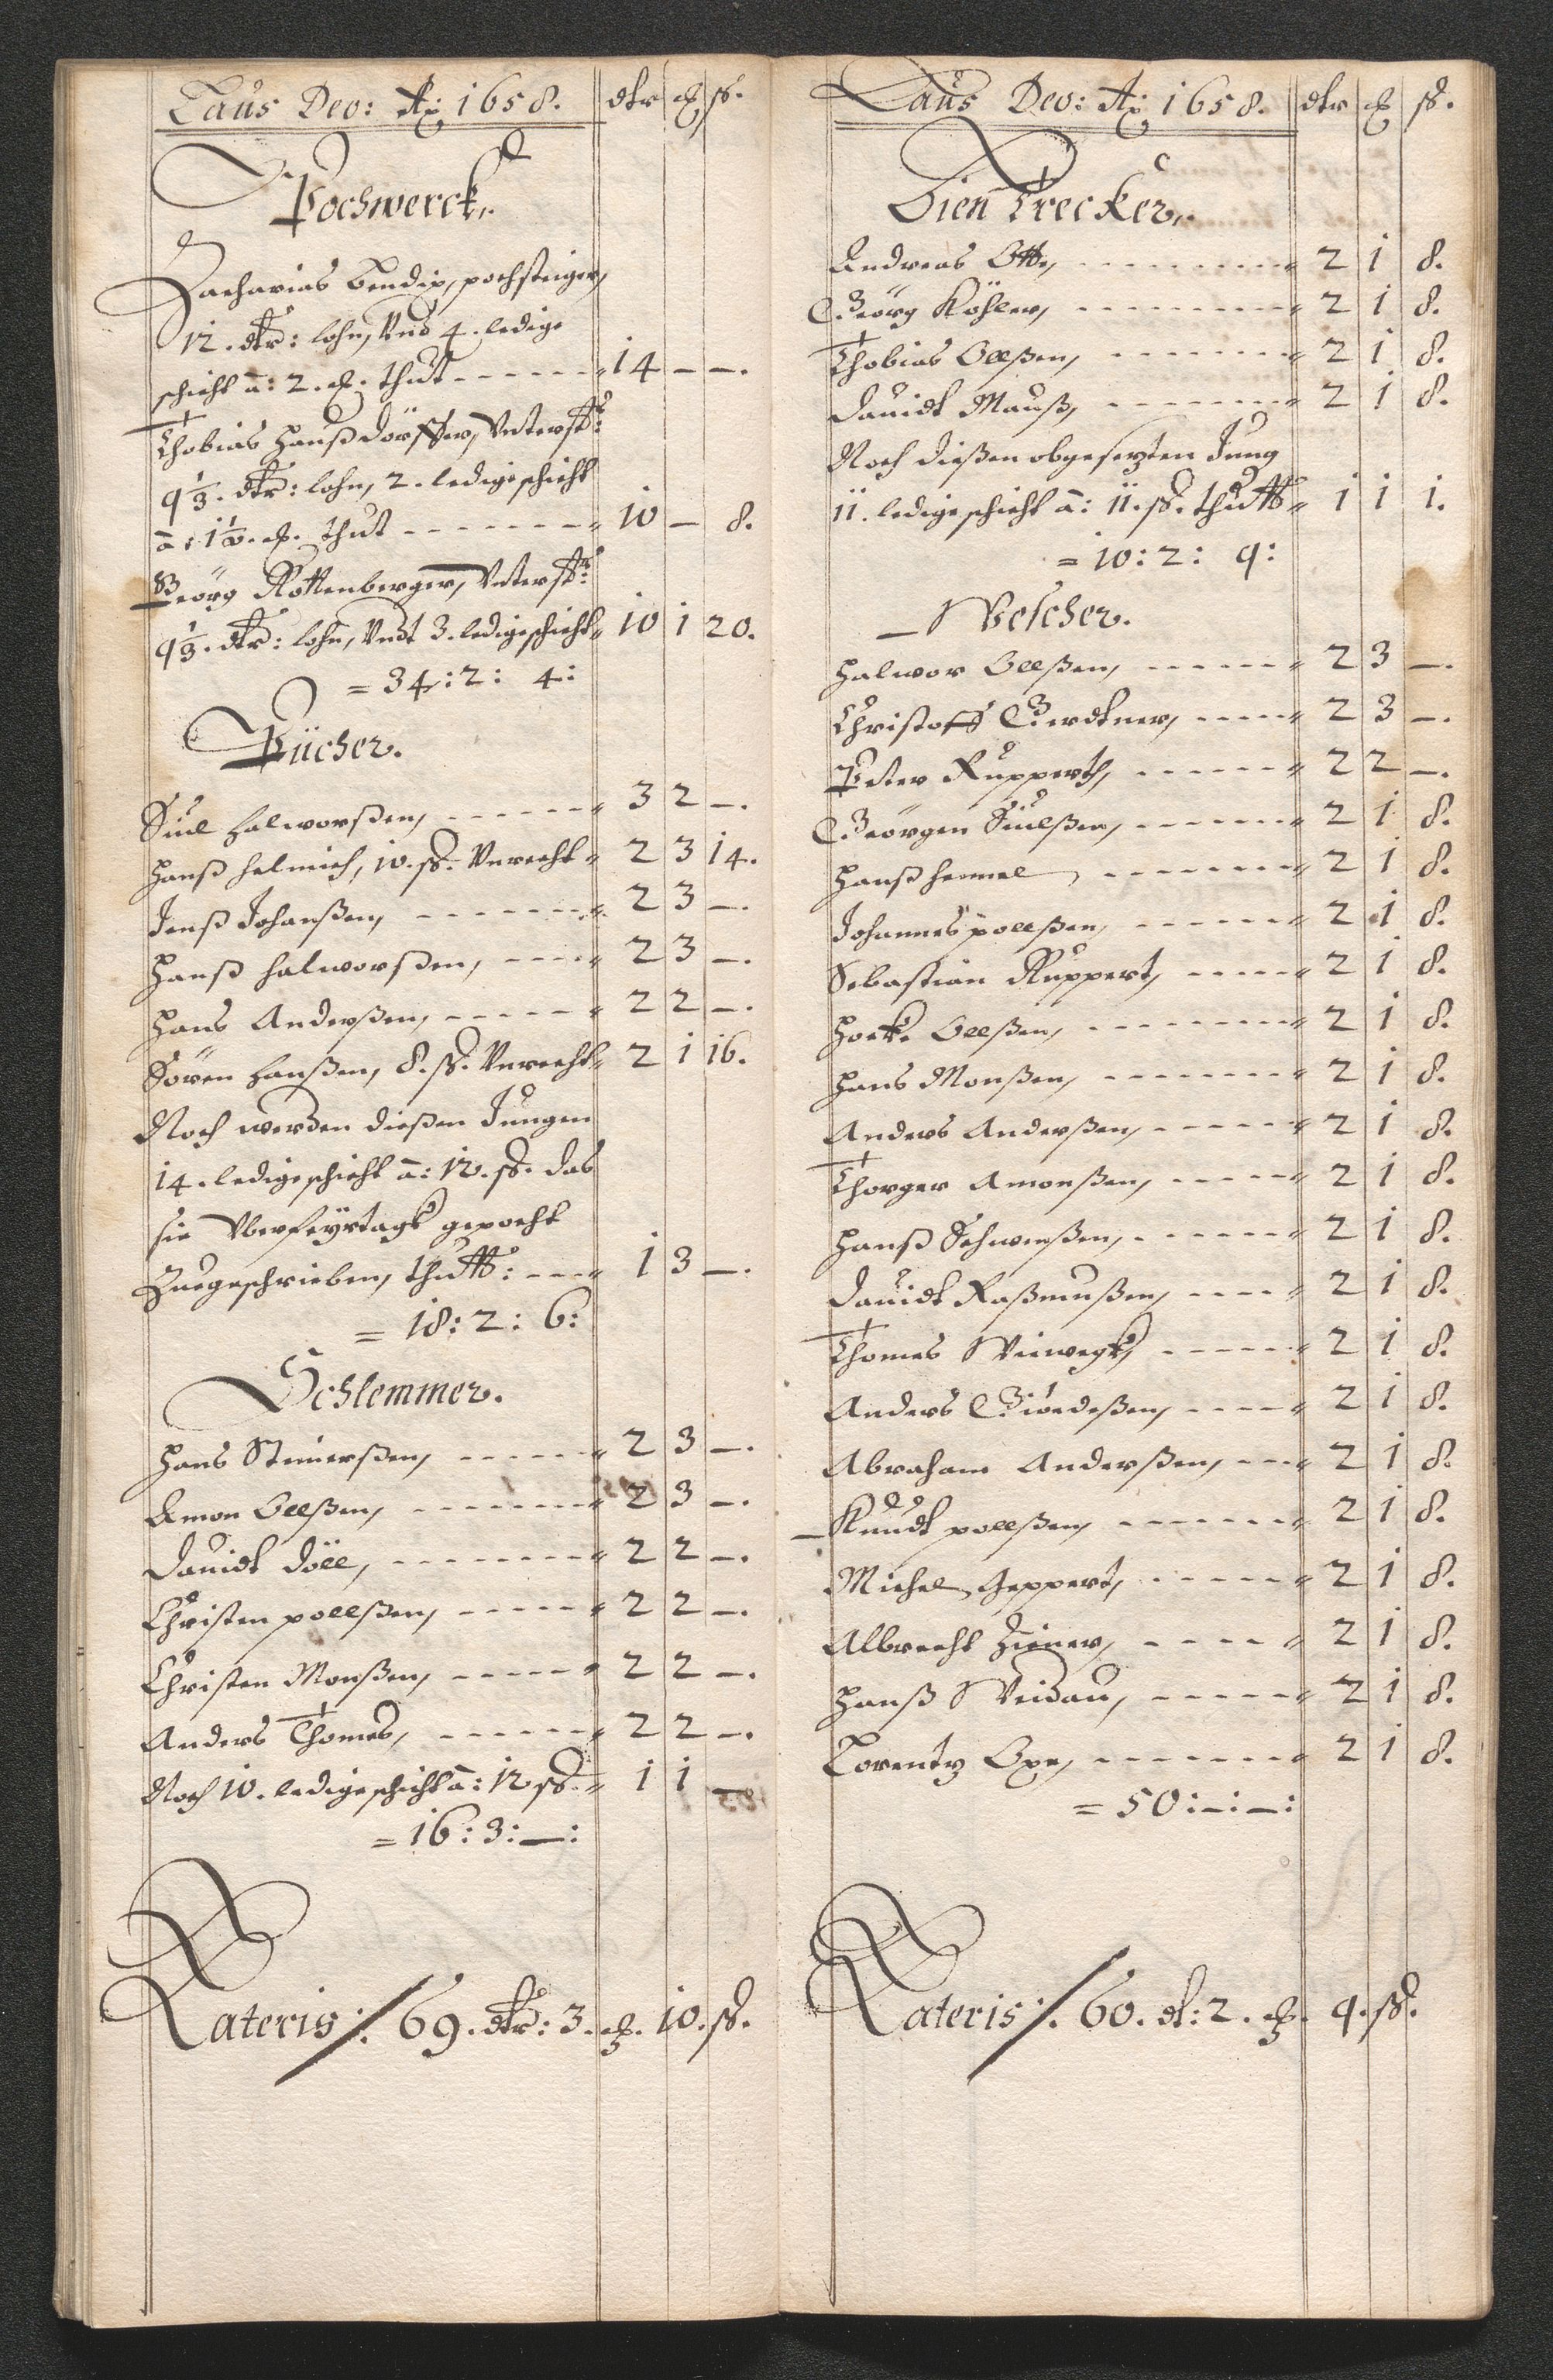 Laus Deo: Ao: 1658. dlr ß.
Pochwerck.
Zacharias Bendix, pochsteiger,
12. dlr: lohn, Vnd 4. ledige
schicht â: 2. thut - - - - - - 14 — —.
Thobias Hanßdörffer, Vnterst:
9 1/3. dlr: lohn, 2. ledige schicht
â: 1 1/2. thut - - - - - - - 10 — 8.
Georg Rottenberger, Vnterst:
9 1/3. dlr: lohn, Vndt 3. ledige schicht 10 1 20.
= 34: 2: 4:
Pücher.
Siul Halworßen, - - - - - - 3 2 —.
Hanß Helmich, 10. ß. Vnrecht 2 3 14.
Jenß Johanßen, - - - - - - - 2 3 —.
Hanß Halworßen, - - - - 2 3 —.
Hans Anderßen, - - - - - 2 2 —.
Sören Hanßen, 8. ß. Vnrecht 2 1 16.
Noch werden dießen Jungen
14. ledige schicht â: 12. ß. das
sie Vber feyrtagk gepocht
Zuegeschrieben, thutt: - - - 1 3 —.
= 18: 2: 6:
Schlemmer.
Hans Steinerßen, - - - - - 2 3 —.
Amon Olßen, - - - - - - - 2 3 —.
Dauidt Döll, - - - - - - - - 2 2 —.
Christen pollßen, - - - - - 2 2 —.
Christen Monßen, - - - - - 2 2 —.
Anders Thomes, - - - - - - 2 2 —.
Noch 10. ledige schicht â: 12 ß. 1 1 —
= 16: 3: —:
Lateris: /. 69. dlr: 3. 10. ß.
Laus Deo: Ao: 1658. dlr ß.
Bien Trecker.
Andreas Otte, - - - - - - - - 2 1 8.
Georg Köhler, - - - - - - - - 2 1 8.
Thobias Olßen, - - - - - - - 2 1 8.
Dauidt Mauß, - - - - - - - 2 1 8.
Noch dießen obgesezten Jung
11. ledige schicht â: 11. ß. thutt 1 1 1.
= 10: 2: 9:
Wescher.
Halwor Olßen, - - - - - - 2 3 —.
Christoff Gerdtner, - - - - - 2 3 —.
Peter Rupperth, - - - - - - 2 2 —.
Georgen Siulßen, - - - - - - 2 1 8.
Hanß Hemel, - - - - - - - 2 1 8.
Johannes pollßen, - - - - - - 2 1 8.
Sebastian Ruppert, - - - - - 2 1 8.
Olßen, - - - - - - - - 2 1 8.
Hans Monßen, - - - - - - - - 2 1 8.
Anders Anderßen, - - - - - 2 1 8.
Thorger Amonßen, - - - - - 2 1 8.
Hanß Schwenßen, - - - - - - 2 1 8.
Dauidt Raßmußen, - - - - 2 1 8.
Thomes Viewegk, - - - - - 2 1 8.
Anders Giödeßen, - - - - 2 1 8.
Abraham Anderßen, - - - 2 1 8.
Knudt pollßen, - - - - - - - 2 1 8.
Michel Geppert, - - - - - 2 1 8.
Albrecht Ziener, - - - - - 2 1 8.
Hanß Weidau, - - - - - 2 1 8.
Lorentz Oxe, - - - - - - - 2 1 8.
= 50: —: —:
Lateris: /. 60. dl: 2. 9. ß.